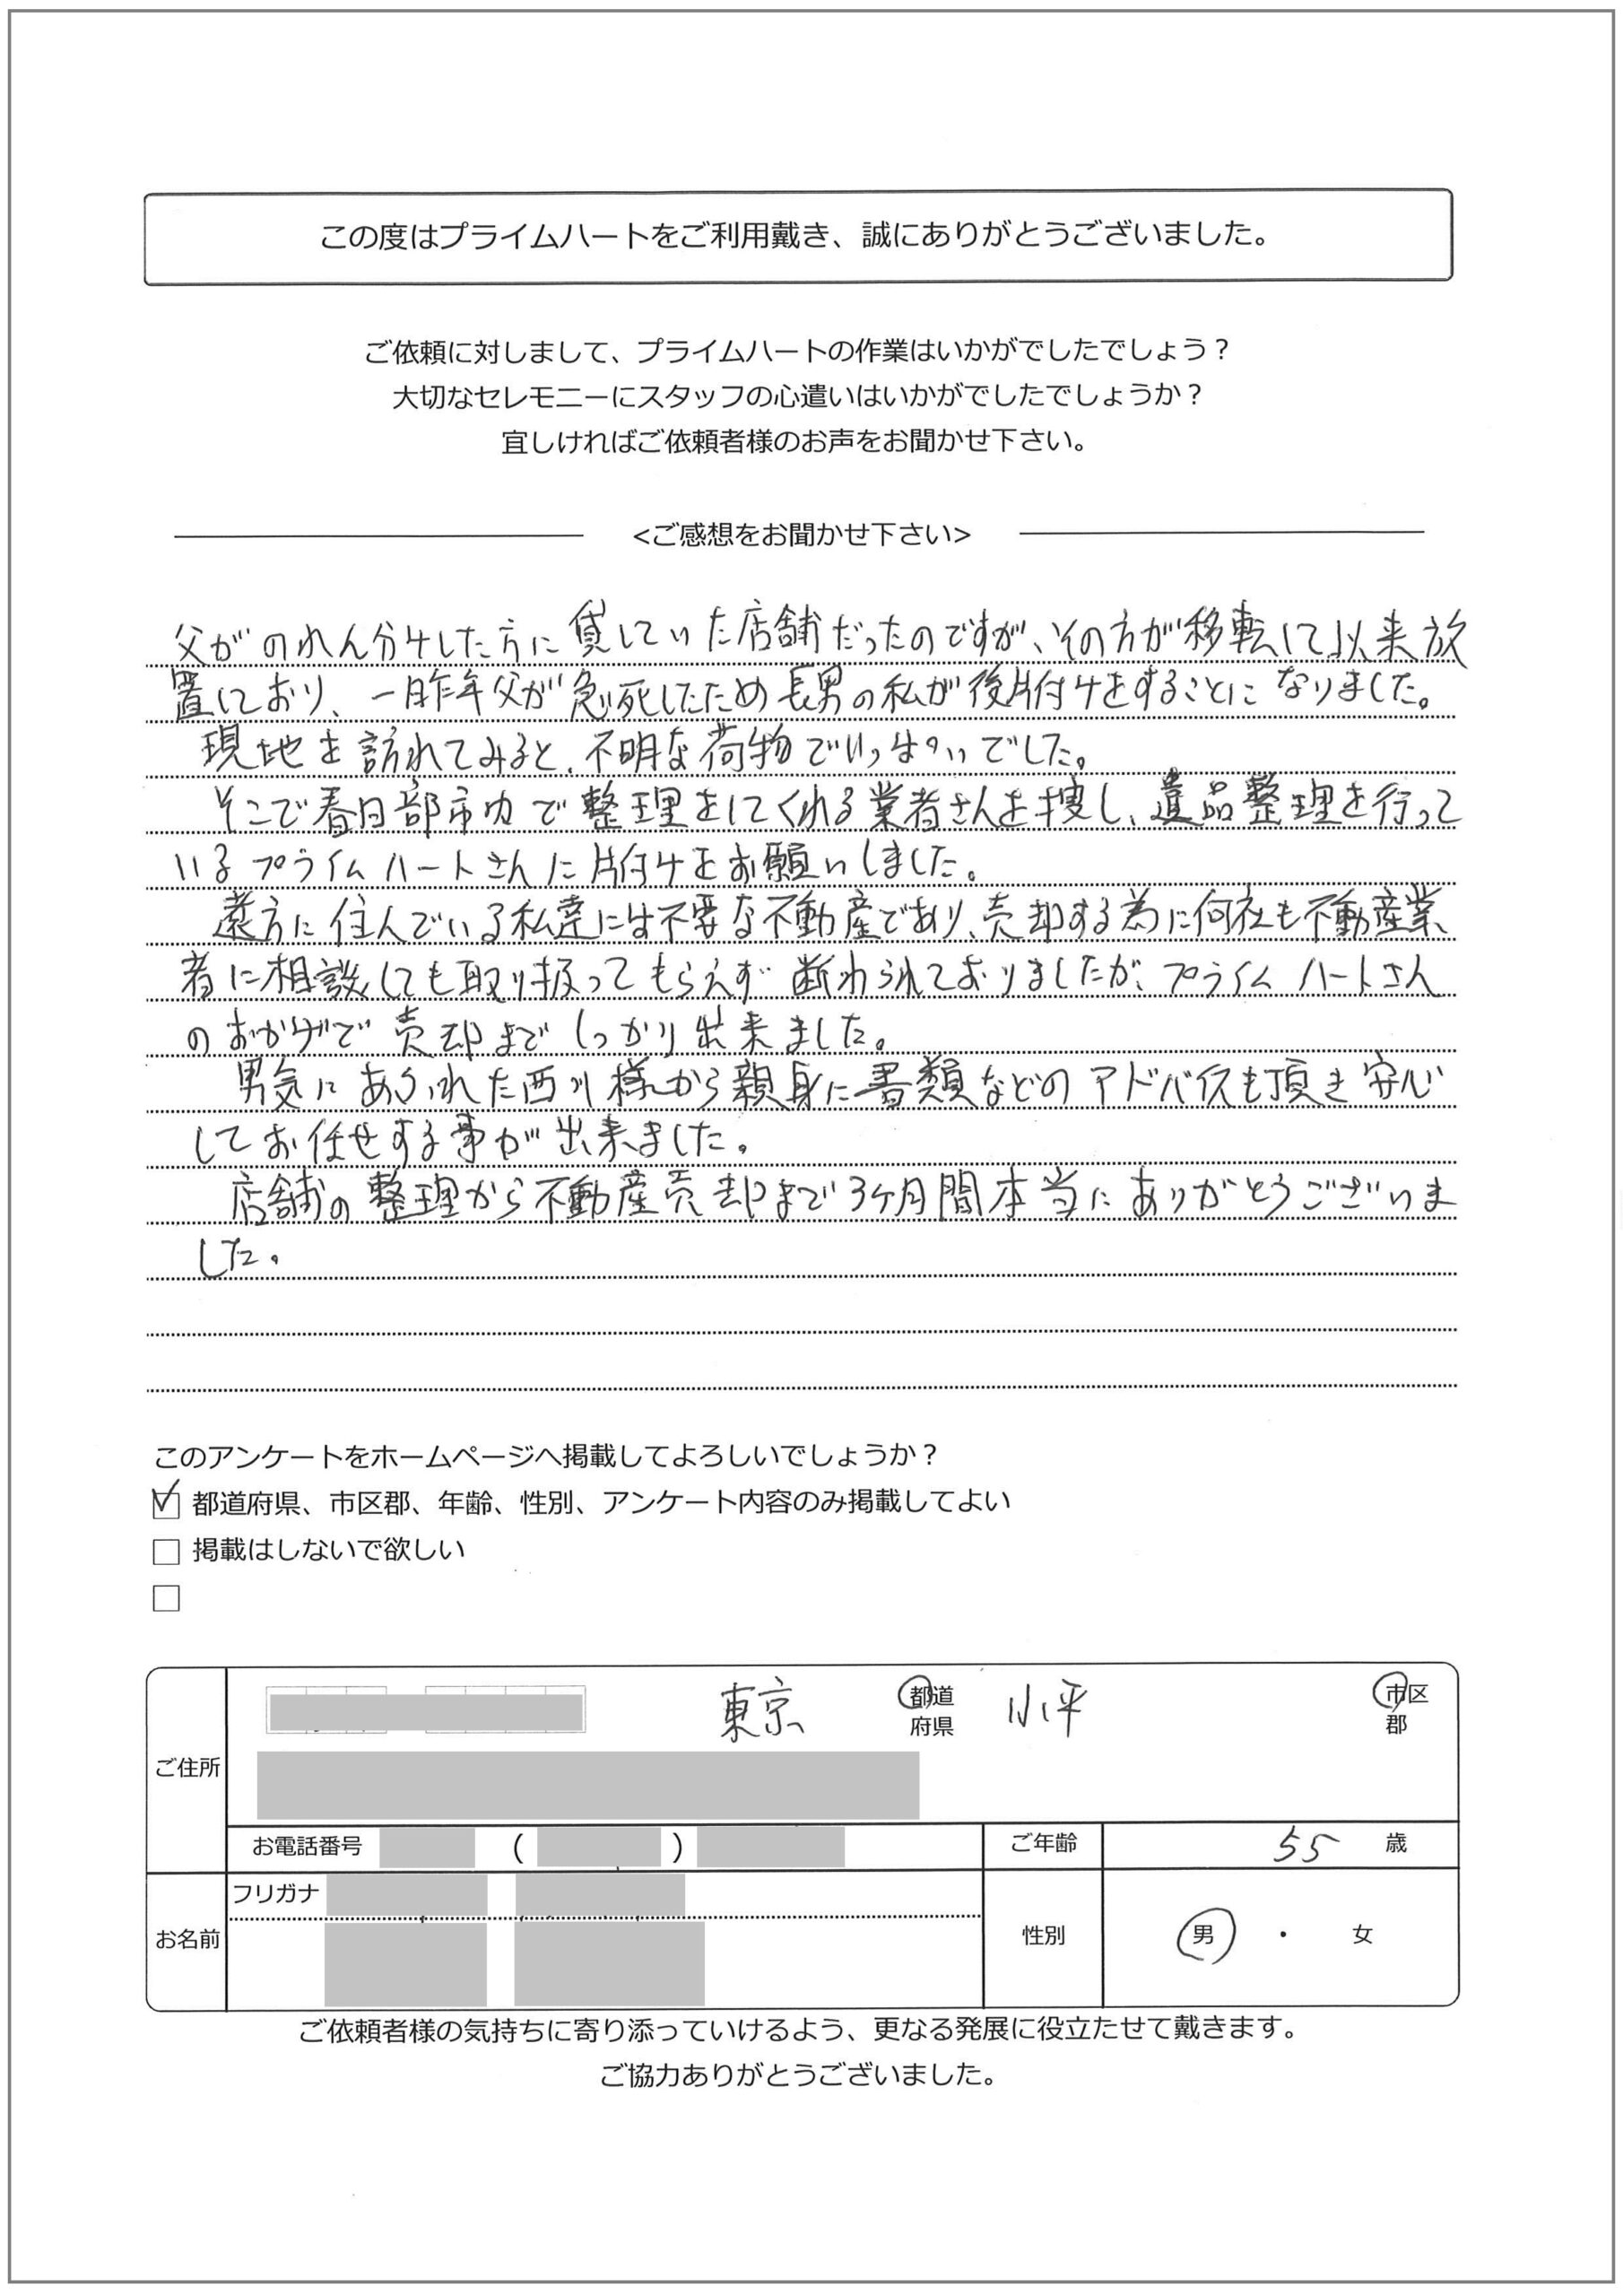 この度はプライムハートをご利用戴き、誠にありがとうございました。
ご依頼に対しまして、プライムハートの作業はいかがでしたでしょう？
大切なセレモニーにスタッフの心遣いはいかがでしたでしょうか？
宜しければご依頼者様のお声をお聞かせ下さい。
<ご感想をお聞かせ下さい>
父がのれん分けした方に貸していた店舗だったのですが、その方が移転して以来放
置しており、一昨年父が急死したため長男の私が後片付けをすることになりました。
現地を訪れてみると、不明な荷物でいっぱいでした。
そこで春日部市内で整理をしてくれる業者さんを捜し、遺品整理を行って
いるプライムハートさんに片付けをお願いしました。
遠方に住んでいる私達には不要な不動産であり、売却する為に何社も不動産業
者に相談しても取り扱ってもらえず断わられておりましたが、プライムハートさん
のおかげで売却までしっかり出来ました。
男気にあふれた西川様から親身に書類などのアドバイスも頂き安心
してお任せする事が出来ました。
店舗の整理から不動産売却まで3ヶ月間本当にありがとうございま
した。
このアンケートをホームページへ掲載してよろしいでしょうか？
都道府県、市区郡、年齢、性別、アンケート内容のみ掲載してよい
掲載はしないで欲しい
ご住所 東京 都道府県 小平 市区郡
お電話番号 ( ) ご年齢 55 歳
フリガナ
お名前 性別 男 ・ 女
ご依頼者様の気持ちに寄り添っていけるよう、更なる発展に役立たせて戴きます。
ご協力ありがとうございました。